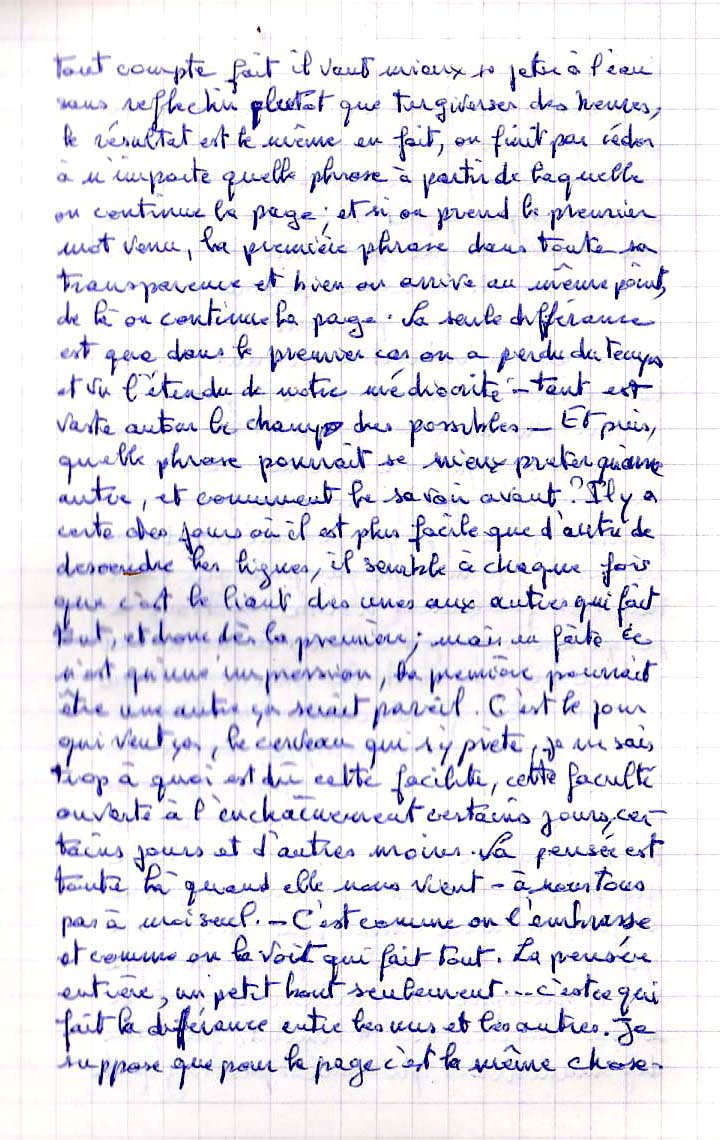 tout compte fait il vaut mieux se jeter à l'eau
sans reflection plutôt que tergiverser des heures,
le résultat est le même en fait, on finit par céder
à n'importe quelle phrase à partir de laquelle
on continue la page ; et si on prend le premier
mot venu, la première phrase dans toute sa
transparence et bien on arrive au même point,
de là on continue la page. La seule différence
est que dans le premier cas on a perdu du temps
et vu l'étendu de notre médiocrité - tant est
vaste autour le champ des possibles - Et puis,
quelle phrase pourrait se mieux preter qu'une
autre, et comment le savoir avant ? Il y a
certe des jours où il est plus facile que d'autre de
descendre les lignes, il semble à chaque fois
que c'est le liant des unes aux autres qui fait
tout, et donc dès la première ; mais en faite ce
n'est qu'une impression, la première pourrait
être une autre ça serait pareil. C'est le jour
qui veut ça, le cerveau qui s'y prête, je ne sais
trop à quoi est dû cette facilité, cette faculté
ouverte à l'enchaînement certains jours, cer-
tains jours et d'autres moins. La pensée est
toute là quand elle nous vient - à nous tous
pas à moi seul. - C'est comme on l'embrasse
et comme on la voit qui fait tout. La pensée
entière, un petit bout seulement... c'est ce qui
fait la différence entre les uns et les autres. Je
suppose que pour la page c'est la même chose.